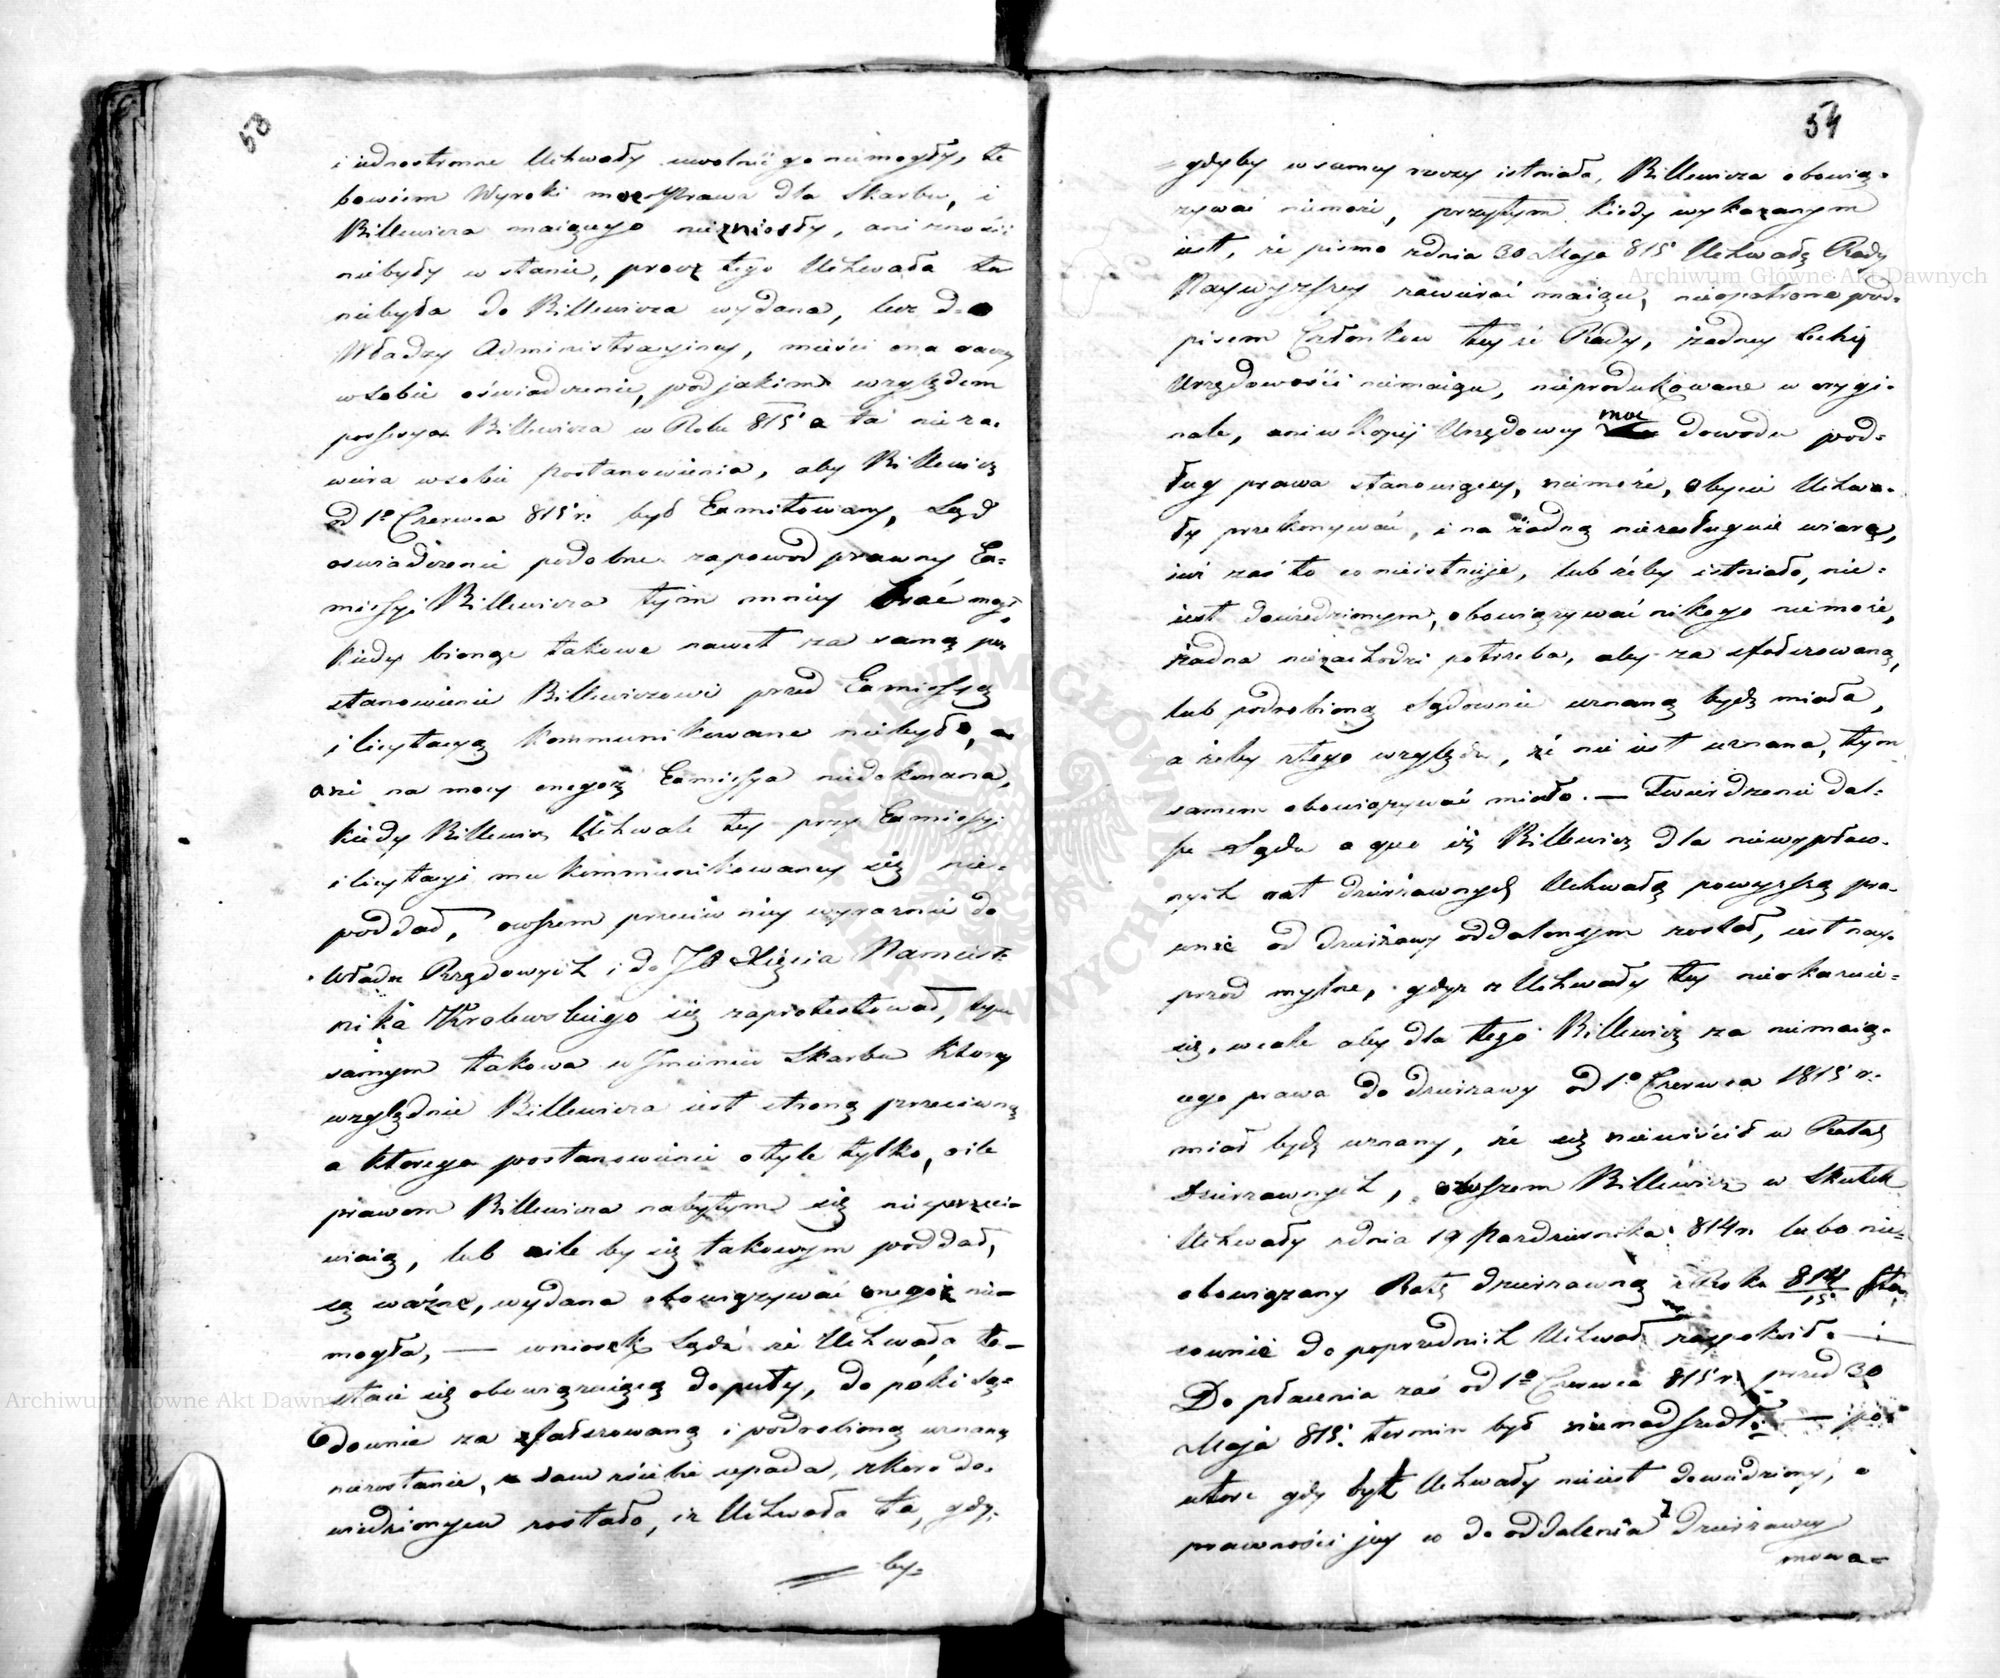 53
i iednostronne Uchwały uwolnić go niemogły, te
bowiem Wyroki moc Prawa dla Skarbu, i
Billewicza maiącego niezniosły, ani znośić
niebyły w stanie, procz tego Uchwała ta
niebyła do Billewicza wydana, lecz do
Władzy Administracyiney, mieści ona raczy
w sobie oświadczenie, pod jakim względem
possesya Billewicza w Roku 815 a ta nie za-
wiera w sobie postanowienia, aby Billewicz
od 1º Czerwca 815 r: był Exmitowany, Sąd
oswiadczenie podobne za powod prawny Ex-
missyi Billewicza tym mniey brać mogł,
kiedy biorąc takowe nawet za samą po-
stanowienie Billewiczowi przed Exmissyą
i licytacyą kommunikowane niebyło,
ani na mocy onegoż Exmissya niedokonana,
kiedy Billewicz Uchwale tey przy Exmissyi
i licytacyi mu kommunikowaney się nie-
poddał, owszem przeciw niey wyraznie do
Władz Rządowych i do JO Xięcia Namiest-
nika Krolewskiego się zaprotestował, tym
samym takowa w Jmieniu Skarbu ktory
względnie Billewicza iest stroną przeciwną
a ktorego postanowienie otyle tylko, oile
prawom Billewicza nabytym się niesprzeci-
wiaią, lub oile by się takowym poddał,
są ważne, wydana obowiązywać onegoż nie-
mogła, — wniosek Sądu że Uchwała zo-
staie się obowiązuiącą dopoty, do poki są-
downie za sfałszowaną i podrobioną uznaną
niezostanie, sam z siebie upada, skoro do-
wiedzionym zostało, iż Uchwała ta, gdy-
by-
54
gdyby w samey rzeczy istniała, Billewicza obowią-
zywać niemoże, przytym kiedy wykazanym
iest, że pismo z dnia 30 Maja 815 Uchwałę Rady
Naywyzszey zawierać maiące, nieopatrzone pod-
pisem Członkow teyże Rady, żadney Cechy
Urzędowości niemaiące, nieprodukowane w orygi-
nale, ani w Kopij Urzędowey moc dowodu pod-
ług prawa stanowiącey, niemoże, o bycie Uchwa-
ły przekonywać, i na żadną niezasługuie wiarę,
iuż zaś to co nieistnieje, lub żeby istniało, nie-
iest dowiedzionym, obowiązywać nikogo niemoże,
żadna niezachodzi potrzeba, aby za sfałszowaną,
lub podrobioną Sądownie uznaną bydź miała,
a żeby z tego względu, że nie iest uznana, tym
samem obowiązywać miało. — Twierdzenie dal-
sze Sądu a quo iż Billewicz dla niewypłaco-
nych rat dzierżawnych Uchwałą powyższą pra-
wnie od dzierżawy oddalonym został, iest nay-
przod mylne, gdyż z Uchwały tey nieokazuie-
się, wcale aby dla tego Billewicz za niemaią-
cego prawa do dzierzawy od 1º Czerwca 1815 r:
miał bydź uznany, że się nieuiścił w Ratach
Dzierzawnych, owszem Billewicz w Skutek
Uchwały z dnia 19 Pazdziernika 814 r. lubo nie-
obowiązany Ratę dzierzawną z Roku 814/15 sto-
sownie do poprzednich Uchwał zaspokoił. — i
Do płacenia zaś od 1º Czerwca 815 r. przed 30
Maja 815. termin był nienadszedł. — po-
wtore gdy byt Uchwały nieiest dowiedziony, o
prawności jey co do oddalenia z Dzierżawy
mowa-